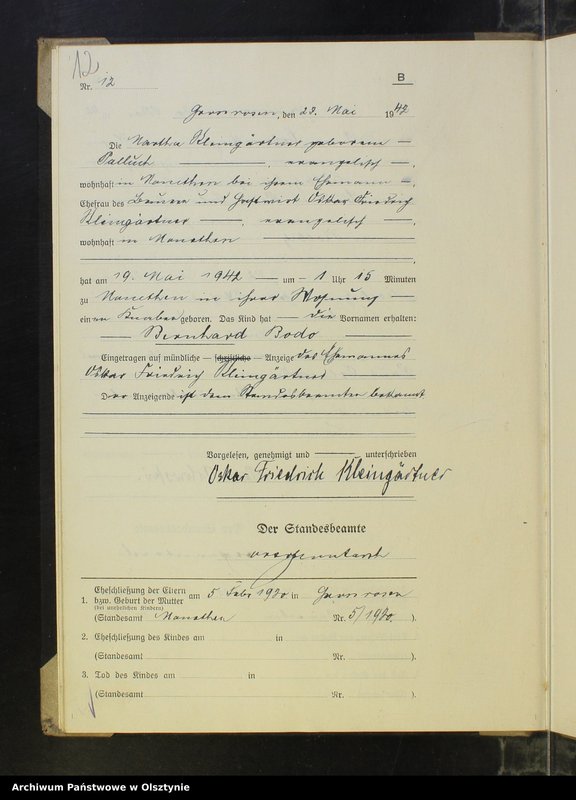 12
Nr. 12 B
Grossrosen, den 22. Mai 1942
Die Martha Kleingärtner geborene —
Palluch —, evangelisch —,
wohnhaft in Monethen bei ihrem Ehemann —,
Ehefrau des Bauern und Gastwirt Oskar Friedrich
Kleingärtner —, evangelisch —,
wohnhaft in Monethen —
hat am 19. Mai 1942 — um — 1 Uhr 15 Minuten
zu Monethen in ihrer Wohnung —
einen Knaben geboren. Das Kind hat — die Vornamen erhalten:
— Bernhard Bodo
Eingetragen auf mündliche — schriftliche — Anzeige des Ehemannes
Oskar Friedrich Kleingärtner —
Der Anzeigende ist dem Standesbeamten bekannt
Vorgelesen, genehmigt und — unterschrieben
Oskar Friedrich Kleingärtner
Der Standesbeamte
1. Eheschließung der Eltern
bzw. Geburt der Mutter am 5. 1920 in Grossrosen
(bei unehelichen Kindern)
(Standesamt Monethen Nr. 5/1920.).
2. Eheschließung des Kindes am in
(Standesamt Nr. ).
3. Tod des Kindes am in
(Standesamt Nr. ).
Archiwum Państwowe w Olsztynie